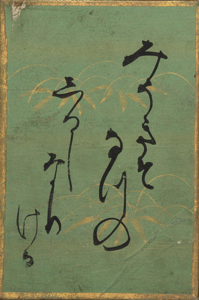 みそきそ
なつの
しるし
なり
ける